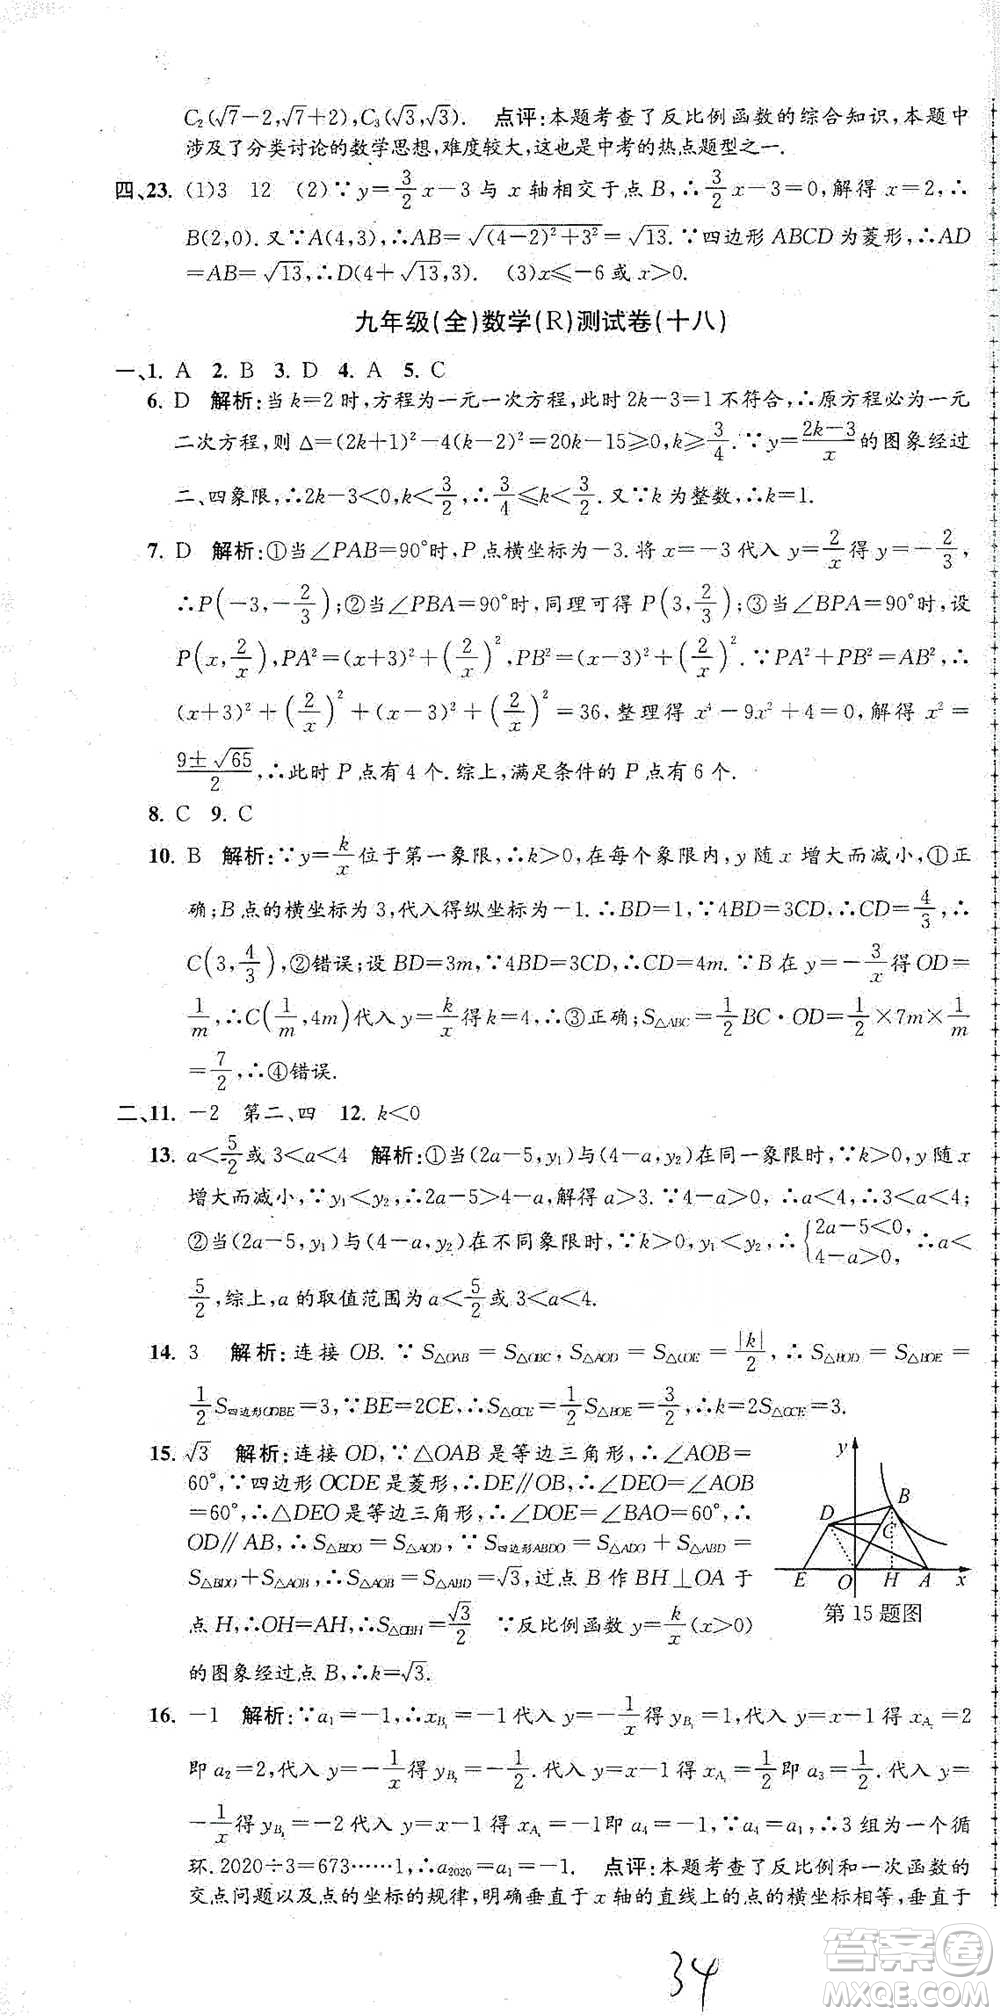 C₂(√7-2,√7+2),C₃(√3,√3). 点评:本题考查了反比例函数的综合知识,本题中
涉及了分类讨论的数学思想,难度较大,这也是中考的热点题型之一.
四、23. (1)3 12 (2)∵y=3/2x-3与x轴相交于点B,∴3/2x-3=0,解得x=2,∴
B(2,0).又∵A(4,3),∴AB=√((4-2)²+3²)=√13.∵四边形ABCD为菱形,∴AD
=AB=√13,∴D(4+√13,3). (3)x≤-6或x>0.
九年级(全)数学(R)测试卷(十八)
一、1. A 2. B 3. D 4. A 5. C
6. D 解析:当k=2时,方程为一元一次方程,此时2k-3=1不符合,∴原方程必为一元
二次方程,则Δ=(2k+1)²-4(k-2)²=20k-15≥0,k≥3/4.∵y=(2k-3)/x的图象经过
二、四象限,∴2k-3<0,k<3/2,∴3/4≤k<3/2.又∵k为整数,∴k=1.
7. D 解析:①当∠PAB=90°时,P点横坐标为-3.将x=-3代入y=2/x得y=-2/3,
∴P(-3,-2/3);②当∠PBA=90°时,同理可得P(3,2/3);③当∠BPA=90°时,设
P(x,2/x),PA²=(x+3)²+(2/x)²,PB²=(x-3)²+(2/x)².∵PA²+PB²=AB²,∴
(x+3)²+(2/x)²+(x-3)²+(2/x)²=36,整理得x⁴-9x²+4=0,解得x²=
(9±√65)/2,∴此时P点有4个.综上,满足条件的P点有6个.
8. C 9. C
10. B 解析:∵y=k/x位于第一象限,∴k>0,在每个象限内,y随x增大而减小,①正
确;B点的横坐标为3,代入得纵坐标为-1.∴BD=1,∵4BD=3CD,∴CD=4/3,∴
C(3,4/3),②错误;设BD=3m,∵4BD=3CD,∴CD=4m.∵B在y=-3/x得OD=
1/m,∴C(1/m,4m)代入y=k/x得k=4,∴③正确;S△ABC=1/2BC·OD=1/2×7m×1/m
=7/2,∴④错误.
二、11. -2 第二、四 12. k<0
13. a<5/2或3<a<4 解析:①当(2a-5,y₁)与(4-a,y₂)在同一象限时,∵k>0,y随x
增大而减小,∵y₁<y₂,∴2a-5>4-a,解得a>3.∵4-a>0,∴a<4,∴3<a<4;
②当(2a-5,y₁)与(4-a,y₂)在不同象限时,∵k>0,y₁<y₂,∴{2a-5<0, 4-a>0, ∴a<
5/2,综上,a的取值范围为a<5/2或3<a<4.
14. 3 解析:连接OB.∵S△OAB=S△OBC,S△AOD=S△COE=|k|/2,∴S△BOD=S△BOE=
1/2S四边形ODBE=3,∵BE=2CE,∴S△OCE=1/2S△BOE=3/2,∴S△OCE=3.
15. √3 解析:连接OD,∵△OAB是等边三角形,∴∠AOB=
60°,∵四边形OCDE是菱形,∴DE∥OB,∴∠DEO=∠AOB
=60°,∴△DEO是等边三角形,∴∠DOE=∠BAO=60°,∴
OD∥AB,∴S△BDO=S△ADO,∵S四边形ABDO=S△ADO+S△ABD=
S△BDO+S△AOB,∴S△AOB=S△ABD=√3,过点B作BH⊥OA于
点H,∴OH=AH,∴S△OBH=√3/2 ∵反比例函数y=k/x(x>0)
的图象经过点B,∴k=√3.
y B D C E O H A x
第15题图
16. -1 解析:∵a₁=-1,∴x_B₁=-1代入y=-1/x得y_B₁=1代入y=x-1得x_A₂=2
即a₂=2,代入y=-1/x得y_B₂=-1/2代入y=x-1得x_A₃=1/2即a₃=1/2,代入y=
-1/x得y_B₃=-2代入y=x-1得x_A₄=-1即a₄=-1,∵a₄=a₁,∴3组为一个循
环.2020÷3=673……1,∴a₂₀₂₀=a₁=-1. 点评:本题考查了反比例和一次函数的
交点问题以及点的坐标的规律,明确垂直于x轴的直线上的点的横坐标相等,垂直于
34
答案圈
MXQE.COM